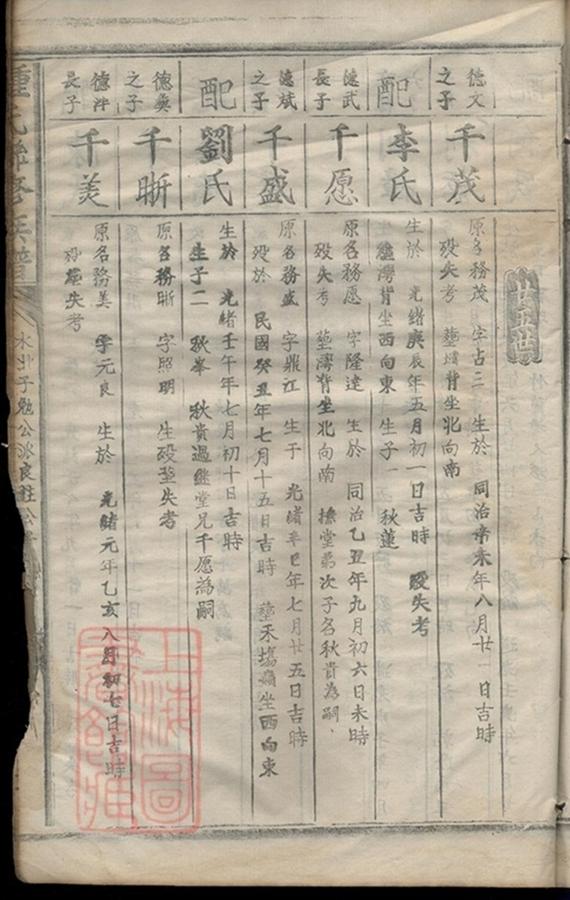 廿五世
德文之子
千茂
原名務茂　字占三　生於　同治辛未年八月廿一日吉時
歿失考　塟灣背坐北向南
配
李氏
生於　光緒庚辰年五月初一日吉時　歿失考
塟灣背坐西向東　生子一　秋蓮
德武長子
千愿
原名務愿　字隆達　生於　同治乙丑年九月初六日未時
歿失考　塟灣背坐北向南　撫堂弟次子名秋貴為嗣
德斌之子
千盛
原名務盛　字鼎江　生于　光緒辛巳年七月廿五日吉時
歿於　民國癸丑年七月十五日吉時　塟禾塲嶺坐西向東
配
劉氏
生於　光緒壬午年七月初十日吉時
生子二　秋峯　秋貴過繼堂兄千愿為嗣
德奠之子
千晣
原名務晣　字照明　生歿塟失考
德泮長子
千美
原名務美　字元良　生於　光緒元年乙亥八月初七日吉時
歿塟失考
上海圖書館藏